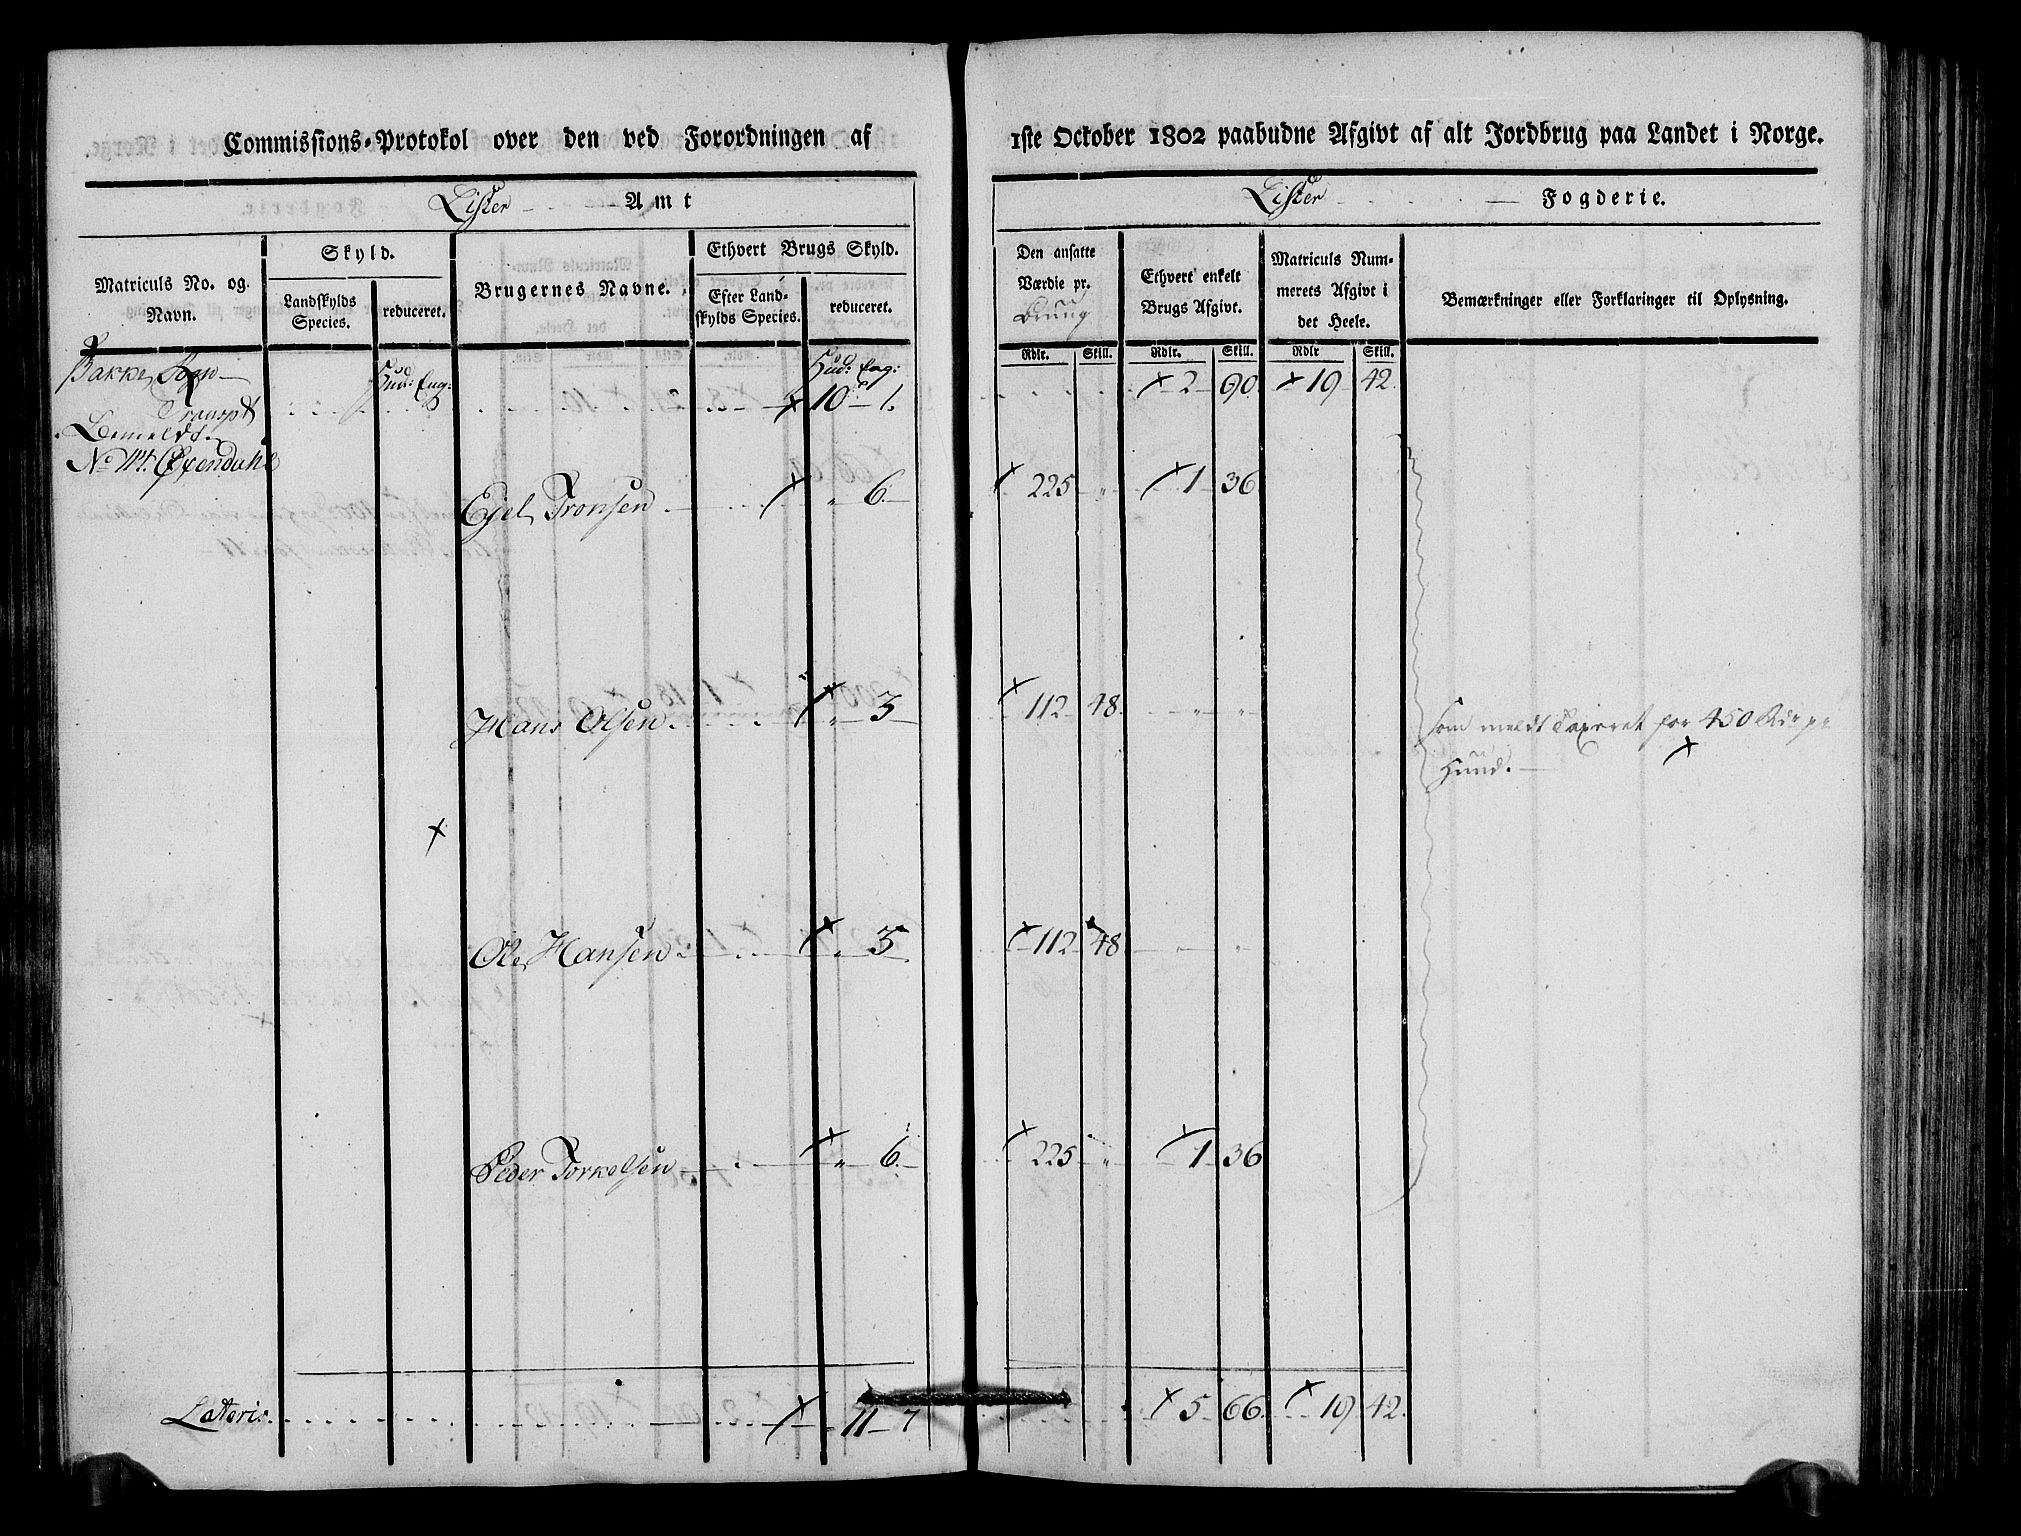 Commissions-Protokol over den ved Forordningen af 1ste October 1802 paabudne Afgivt af alt Jordbrug paa Landet i Norge.
Lister Amt
Lister Fogderie.
Matriculs No. og Navn.
Skyld.
Landskylds Species.
reduceret.
Brugernes Navne.
Ethvert Brugs Skyld.
Efter Landskylds Species.
reduceret.
Den ansatte Værdie pr. Brug
Ethvert enkelt Brugs Afgivt.
Matriculs Nummerets Afgivt i det Heele.
Bemærkninger eller Forklaringer til Oplysning.
Rdlr. Skill. Rdlr. Skill. Rdlr Skill.
Bakke Sogn
Hud: Eng: Hud: Eng:
Transpt 10 1. 2 90 19 42.
Bemeldte
No Øxendahl
Ejel Tronsen " 6. 225 " 1 36
Hans Olsen " 3 112 48. " "
som meldt Taxeret for 450 Rdr pr
Huud.
Ole Hansen " 3 112 48 " "
Peder Torkelsen " 6. 225 " 1 36
Lateris 11 7 5 66. 19 42.